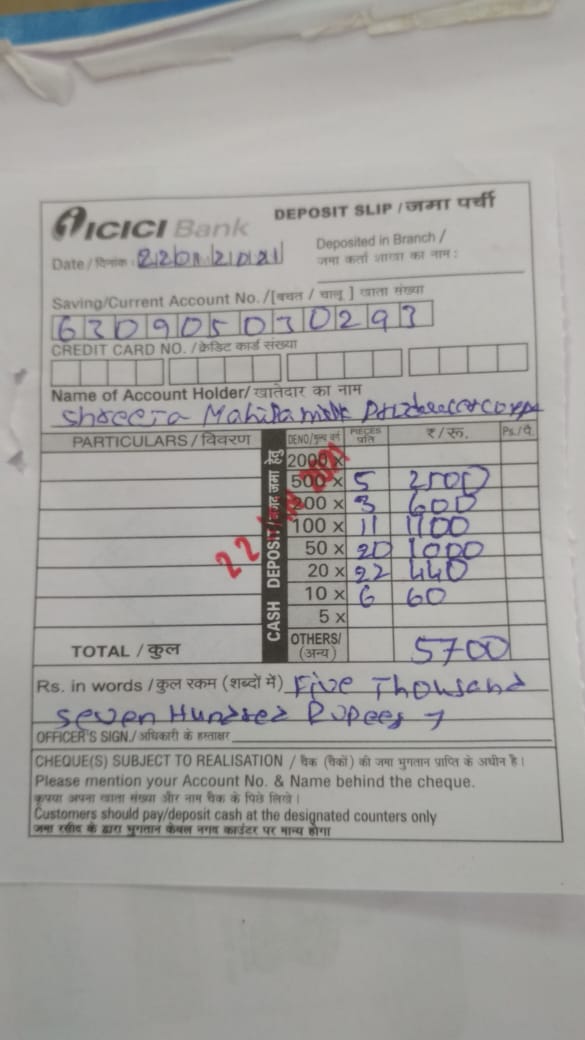 ICICI Bank
DEPOSIT SLIP / जमा पर्ची
Date / दिनांक : 22012021
Deposited in Branch /
जमा कर्ता शाखा का नाम :
Saving/Current Account No. /[बचत / चालू ] खाता संख्या
630905030293
CREDIT CARD NO. / क्रेडिट कार्ड संख्या
Name of Account Holder/ खातेदार का नाम
Shreeja Mahila milk
PARTICULARS / विवरण
CASH DEPOSIT / नगद जमा हेतु
DENO/मूल्य वर्ग PIECES प्रति ₹/रू. Ps./पै.
2000 x
500 x 5 2500
200 x 3 600
100 x 11 1100
50 x 20 1000
20 x 22 440
10 x 6 60
5 x
22 2021
TOTAL / कुल
OTHERS/ (अन्य) 5700
Rs. in words / कुल रकम (शब्दों में) Five Thousand
Seven Hundred Rupees
OFFICER'S SIGN./ अधिकारी के हस्ताक्षर
CHEQUE(S) SUBJECT TO REALISATION / चैक (चैकों) की जमा भुगतान प्राप्ति के अधीन है।
Please mention your Account No. & Name behind the cheque.
कृपया अपना खाता संख्या और नाम चैक के पिछे लिखे।
Customers should pay/deposit cash at the designated counters only
जमा रसीद के द्वारा भुगतान केवल नगद काउंटर पर मान्य होगा